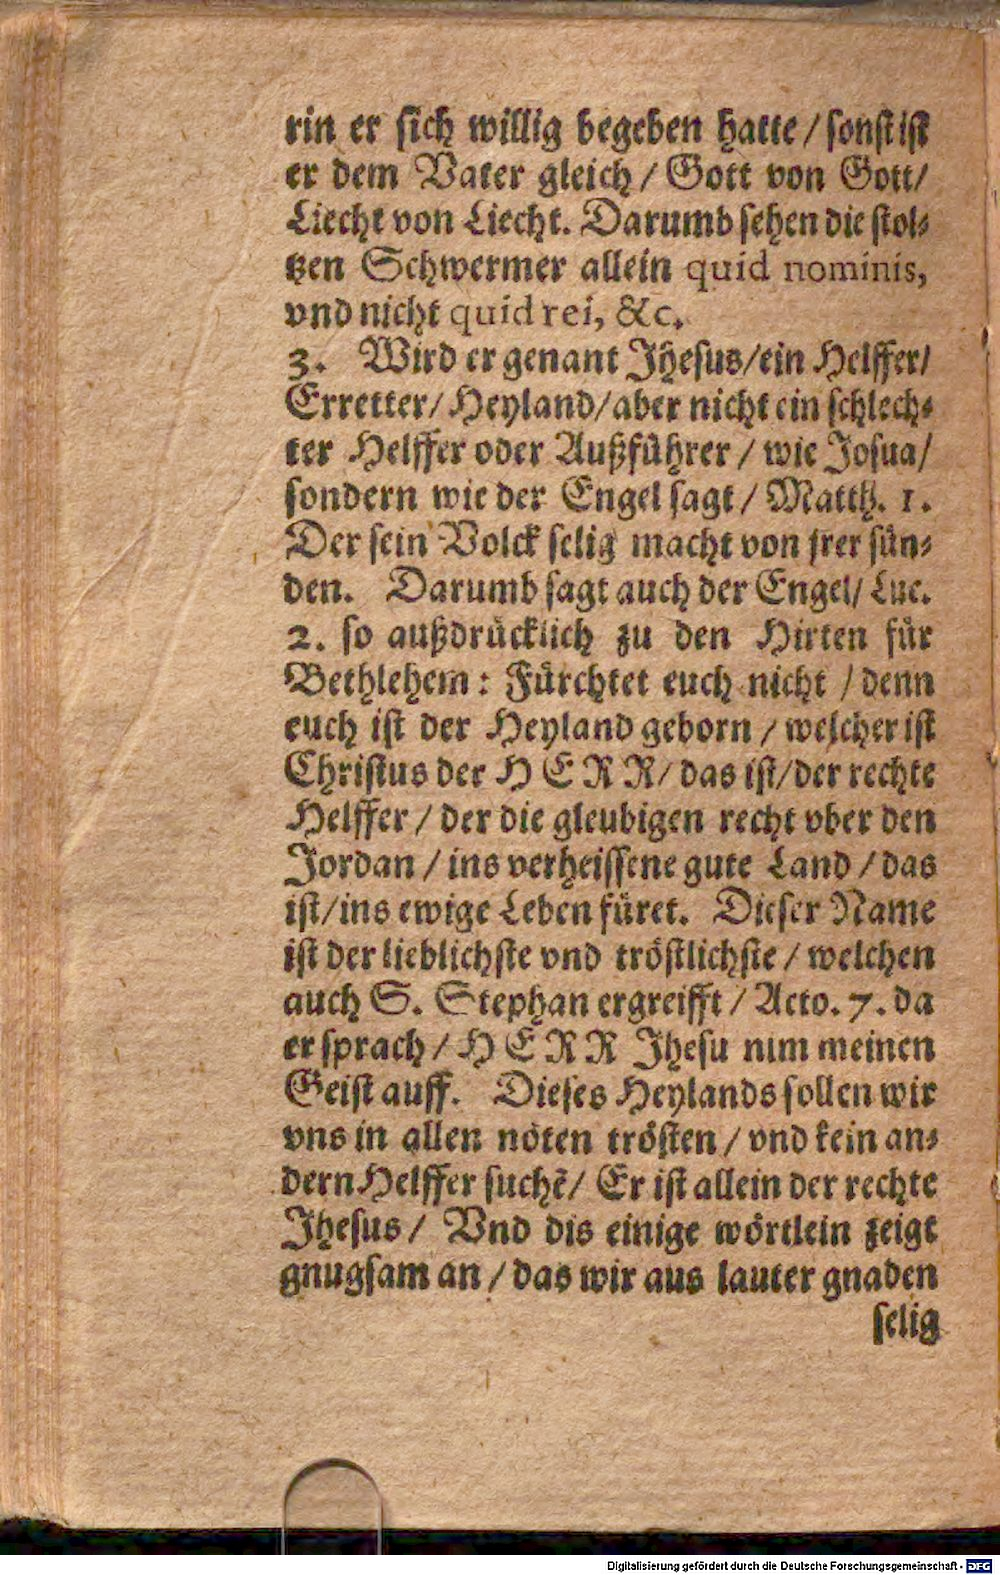 rin er sich willig begeben hatte / sonst ist
er dem Vater gleich / Gott von Gott /
Liecht von Liecht. Darumb sehen die stol-
tzen Schwermer allein quid nominis,
vnd nicht quid rei, &c.
3. Wird er genant Jhesus / ein Helffer /
Erretter / Heyland / aber nicht ein schlech-
ter Helffer oder Außführer / wie Josua /
sondern wie der Engel sagt / Matth. 1.
Der sein Volck selig macht von jrer sün-
den. Darumb sagt auch der Engel / Luc.
2. so außdrücklich zu den Hirten für
Bethlehem: Fürchtet euch nicht / denn
euch ist der Heyland geborn / welcher ist
Christus der HERR / das ist / der rechte
Helffer / der die gleubigen recht vber den
Jordan / ins verheissene gute Land / das
ist / ins ewige Leben füret. Dieser Name
ist der lieblichste vnd tröstlichste / welchen
auch S. Stephan ergreifft / Acto. 7. da
er sprach / HERR Jhesu nim meinen
Geist auff. Dieses Heylands sollen wir
vns in allen nöten trösten / vnd kein an-
dern Helffer suchẽ / Er ist allein der rechte
Jhesus / Vnd dis einige wörtlein zeigt
gnugsam an / das wir aus lauter gnaden
selig
Digitalisierung gefördert durch die Deutsche Forschungsgemeinschaft - DFG